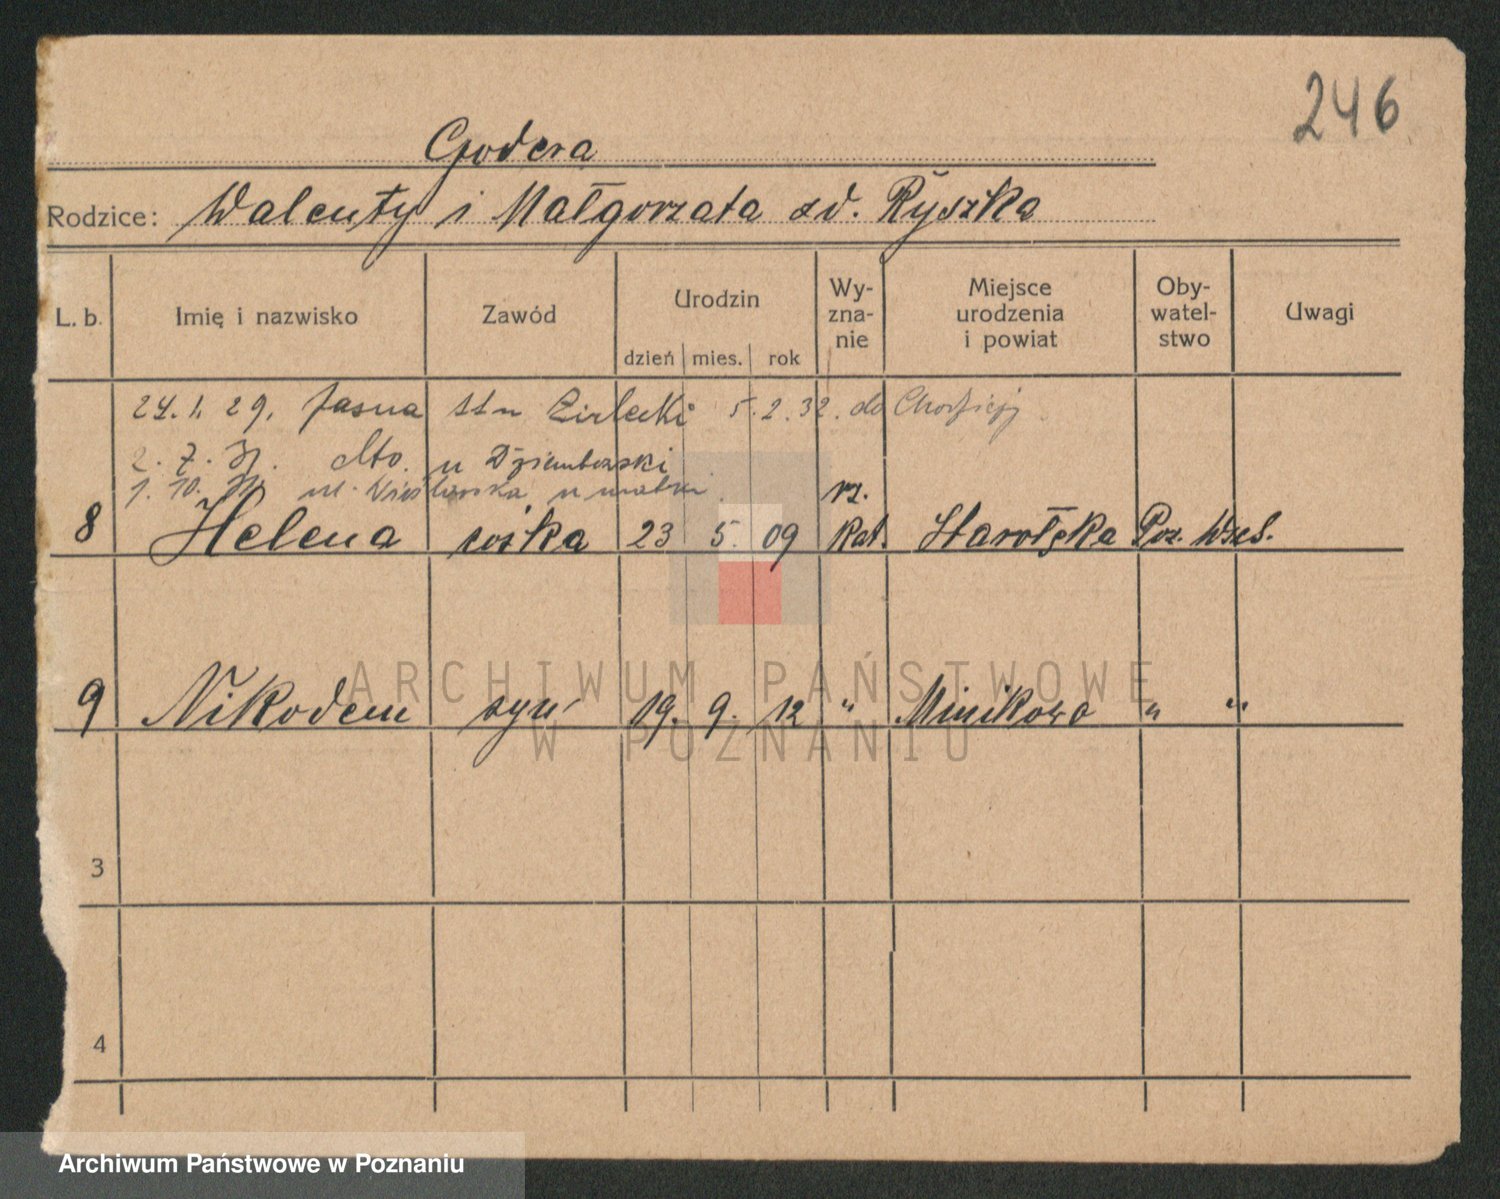 246
Godera
Rodzice: Walenty i Małgorzata zd. Ryszka
L. b. Imię i nazwisko Zawód Urodzin dzień mies. rok Wy-zna-nie Miejsce urodzenia i powiat Oby-watel-stwo Uwagi
24. 1. 29. Jasna 5. 2. 32. do
2. 7. dto. u Dziembowski
1. 10. ul. u matki
rz.
8 Helena córka 23 5. 09 kat. Starołęka Poz. Wsch.
9 Nikodem syn 19. 9. 12 " Minikowo " "
3
4
ARCHIWUM PAŃSTWOWE
W POZNANIU
Archiwum Państwowe w Poznaniu